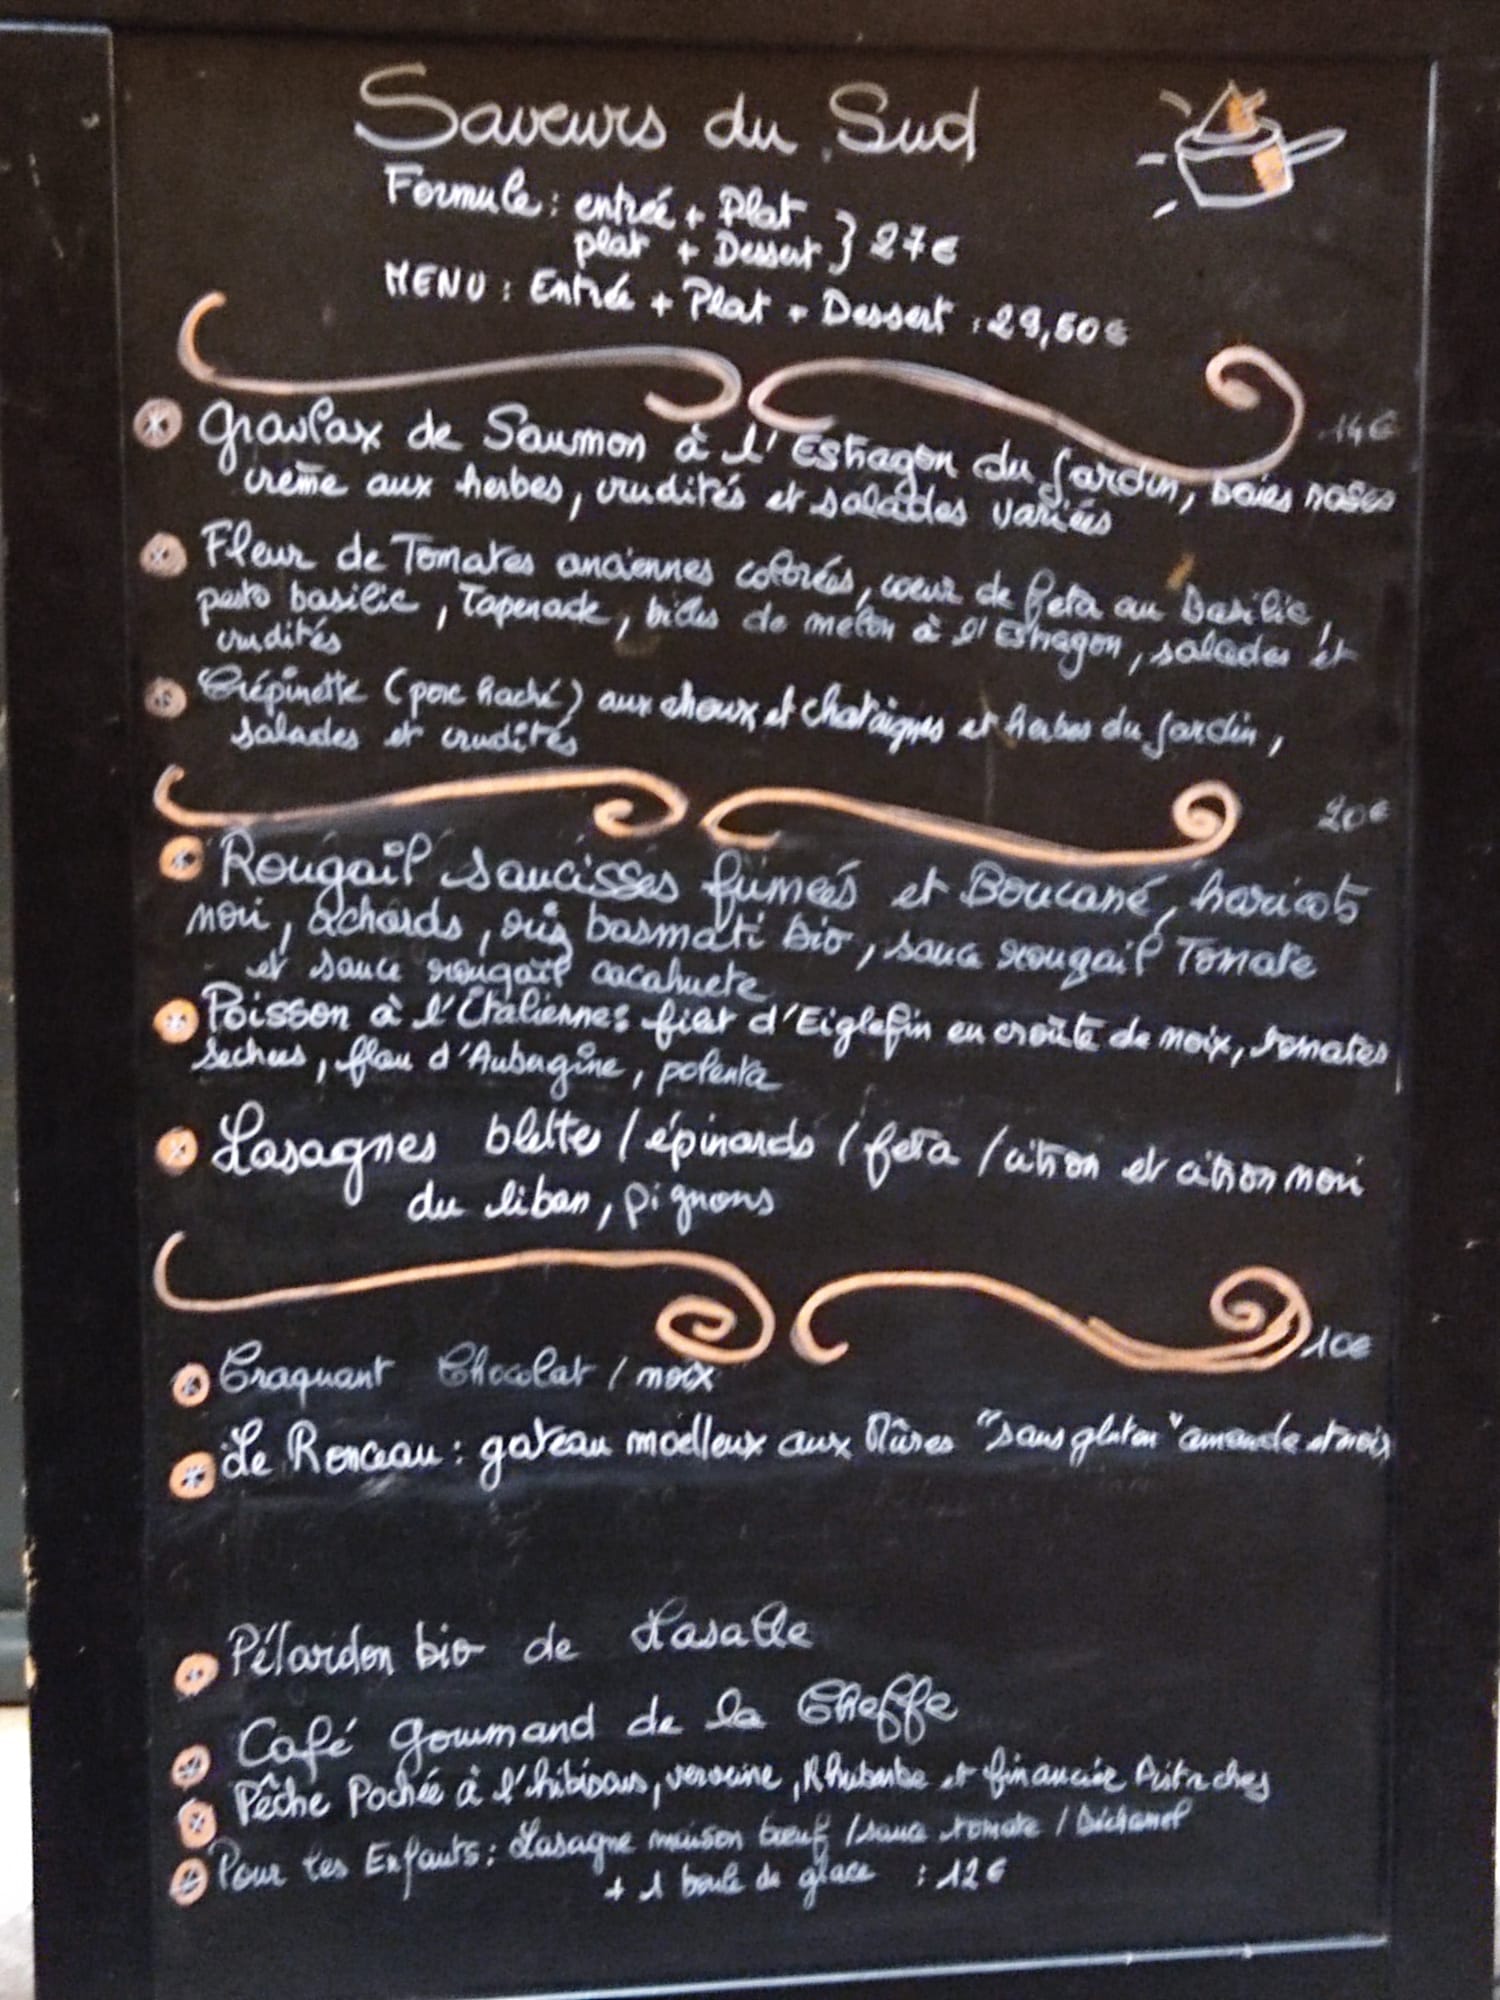 Saveurs du Sud
Formule : entrée + Plat
plat + Dessert } 27€
MENU : Entrée + Plat + Dessert : 29,50€
14€
Gravlax de Saumon à l'Estragon du Jardin, baies roses
crème aux herbes, crudités et salades variées
Fleur de Tomates anciennes colorées, coeur de feta au Basilic,
pesto basilic, Tapenade, billes de melon à l'Estragon, salades et
crudités
Crépinette (porc haché) aux choux et chataignes et herbes du Jardin,
salades et crudités
20€
Rougail saucisses fumées et Boucané, haricots
noir, achards, riz basmati bio, sauce rougail Tomate
et sauce rougail cacahuete
Poisson à l'Italiennes filet d'Eiglefin en croûte de noix, tomates
sechees, flan d'Aubergine, polenta
Lasagnes blettes / épinards / feta / citron et citron noir
du liban, pignons
10€
Craquant Chocolat / noix
Le Ronceau : gateau moelleux aux Mûres "sans gluten" amande et noix
Pélardon bio de Lasalle
Café gourmand de la Cheffe
Pêche Pochée à l'hibiscus, verveine, Rhubarbe et financier Pistaches
Pour les Enfants : Lasagne maison bœuf / sauce tomate / Béchamel
+ 1 boule de glace : 12€